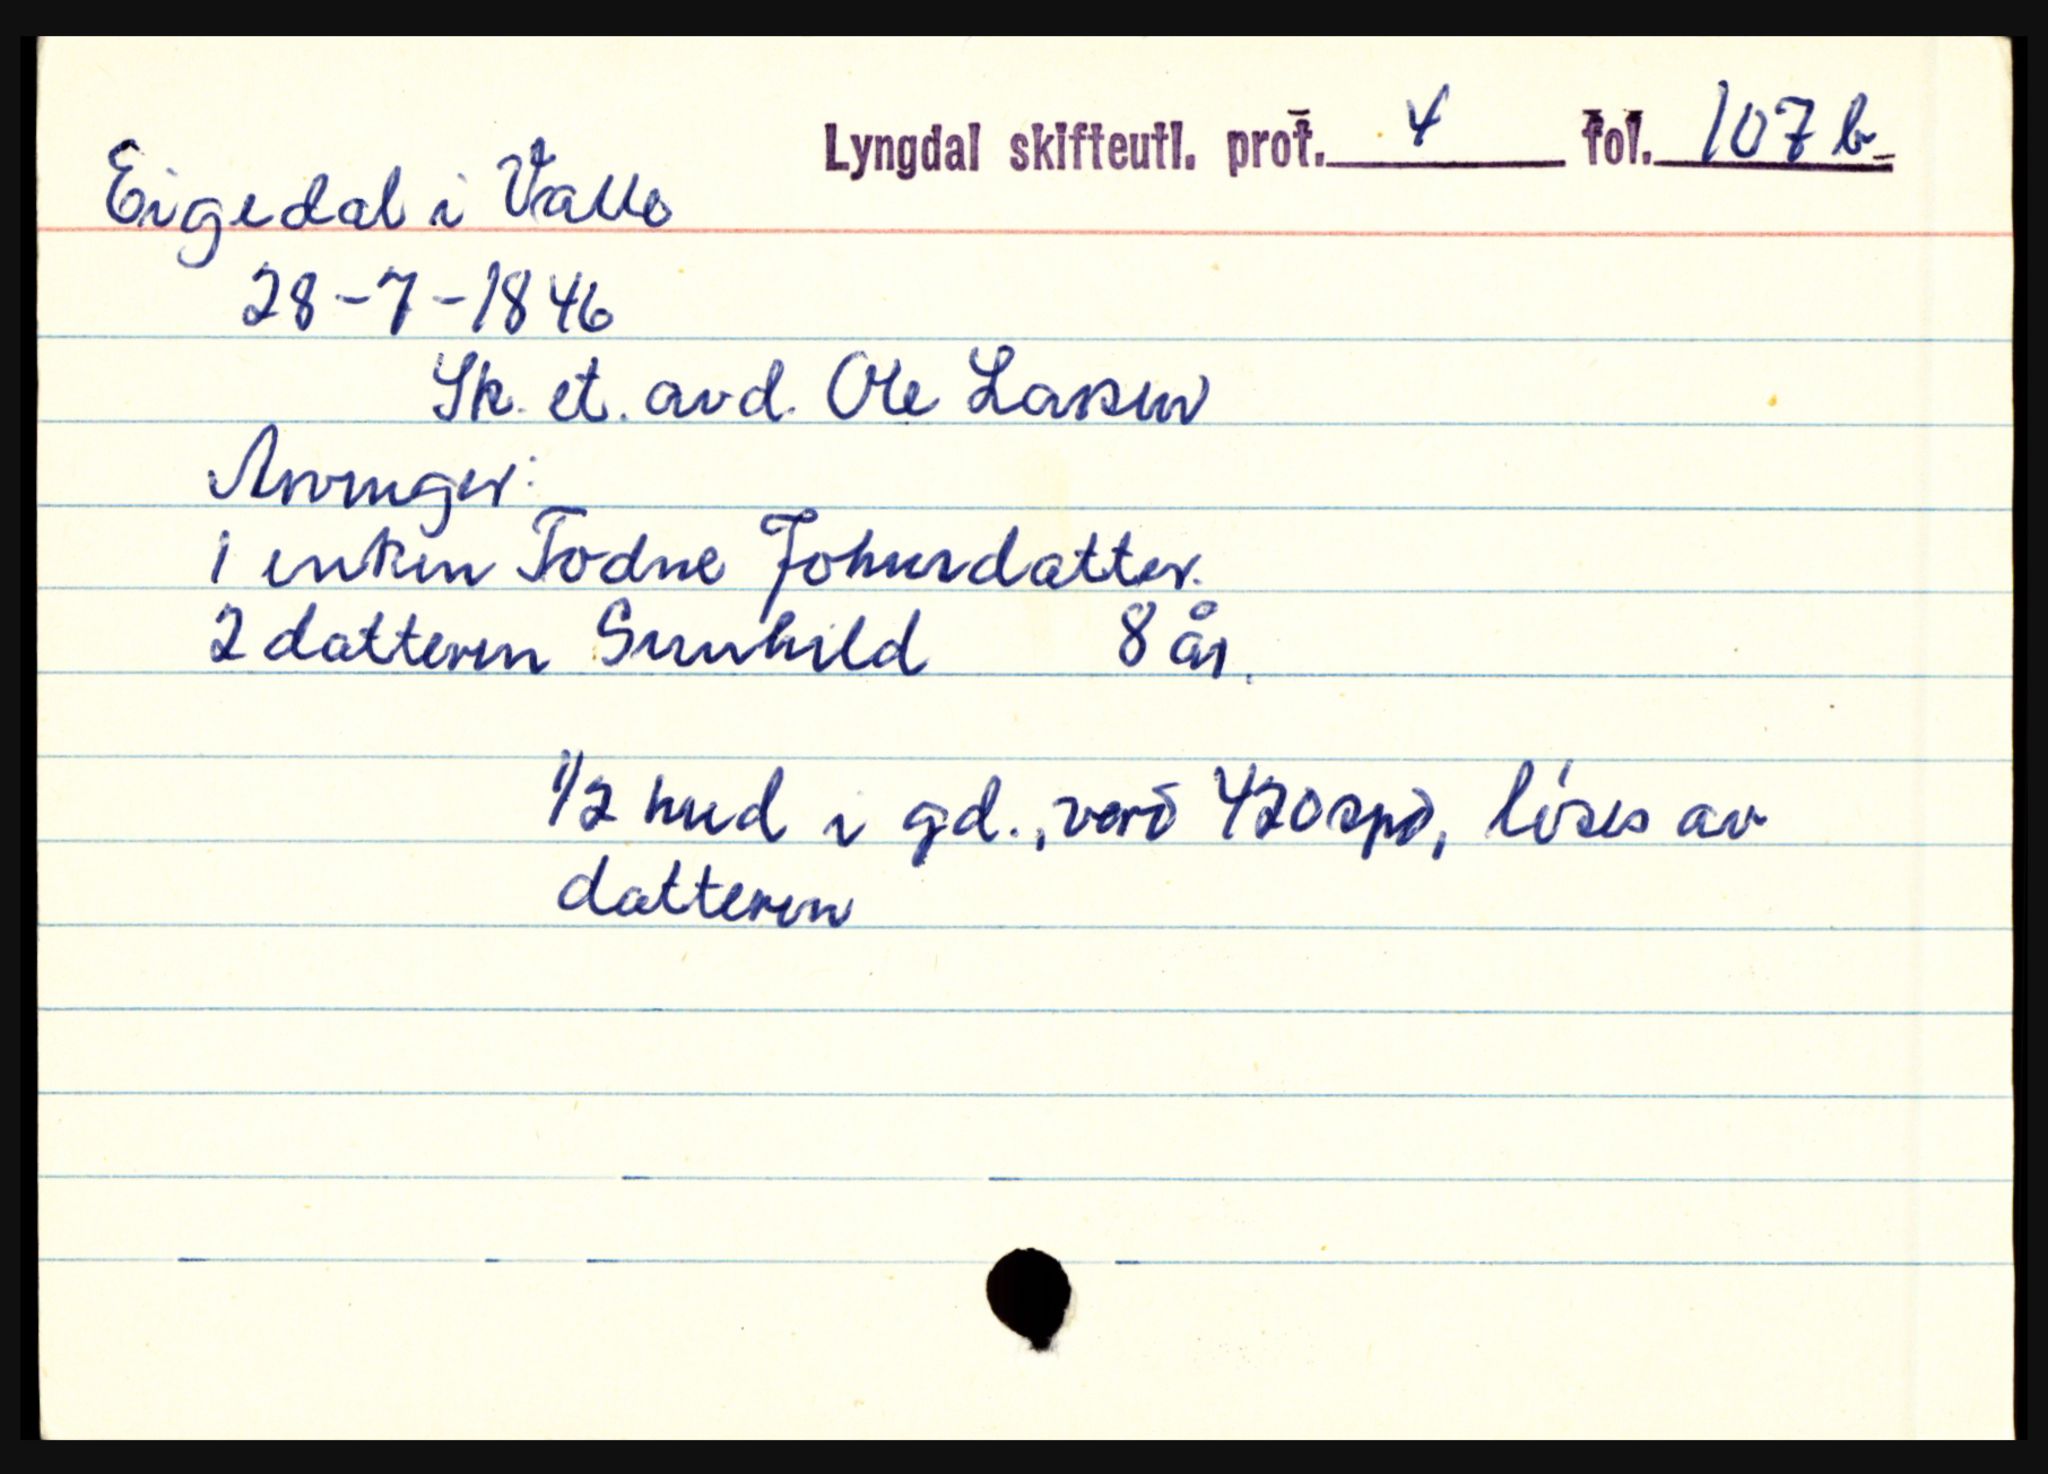 Lyngdal skifteutl. prot. 4 fol. 107 b
Eigedal i Valle
28-7-1846
Sk. et. avd. Ole Lassen
Arvinger:
1 enken Todne Johnsdatter.
2 datteren Gunhild 8 år.
1/2 hud i gd., verd 420 spd, löses av
datteren